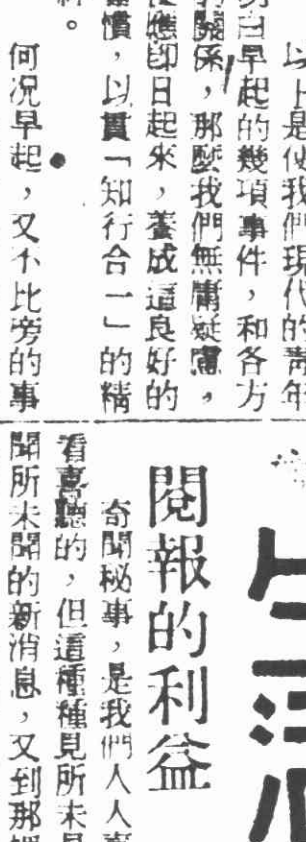 以上是使我們現代的青年
早起的幾項事件，和各方
關係，那麼我們無庸疑慮，
應卽日起來，養成這良好的
慣，以貫「知行合一」的精
。
何况早起，又不比旁的事
閱報的利益
奇聞秘事，是我們人人喜
看喜聽的，但這種種見所未見
聞所未聞的新消息，又到那